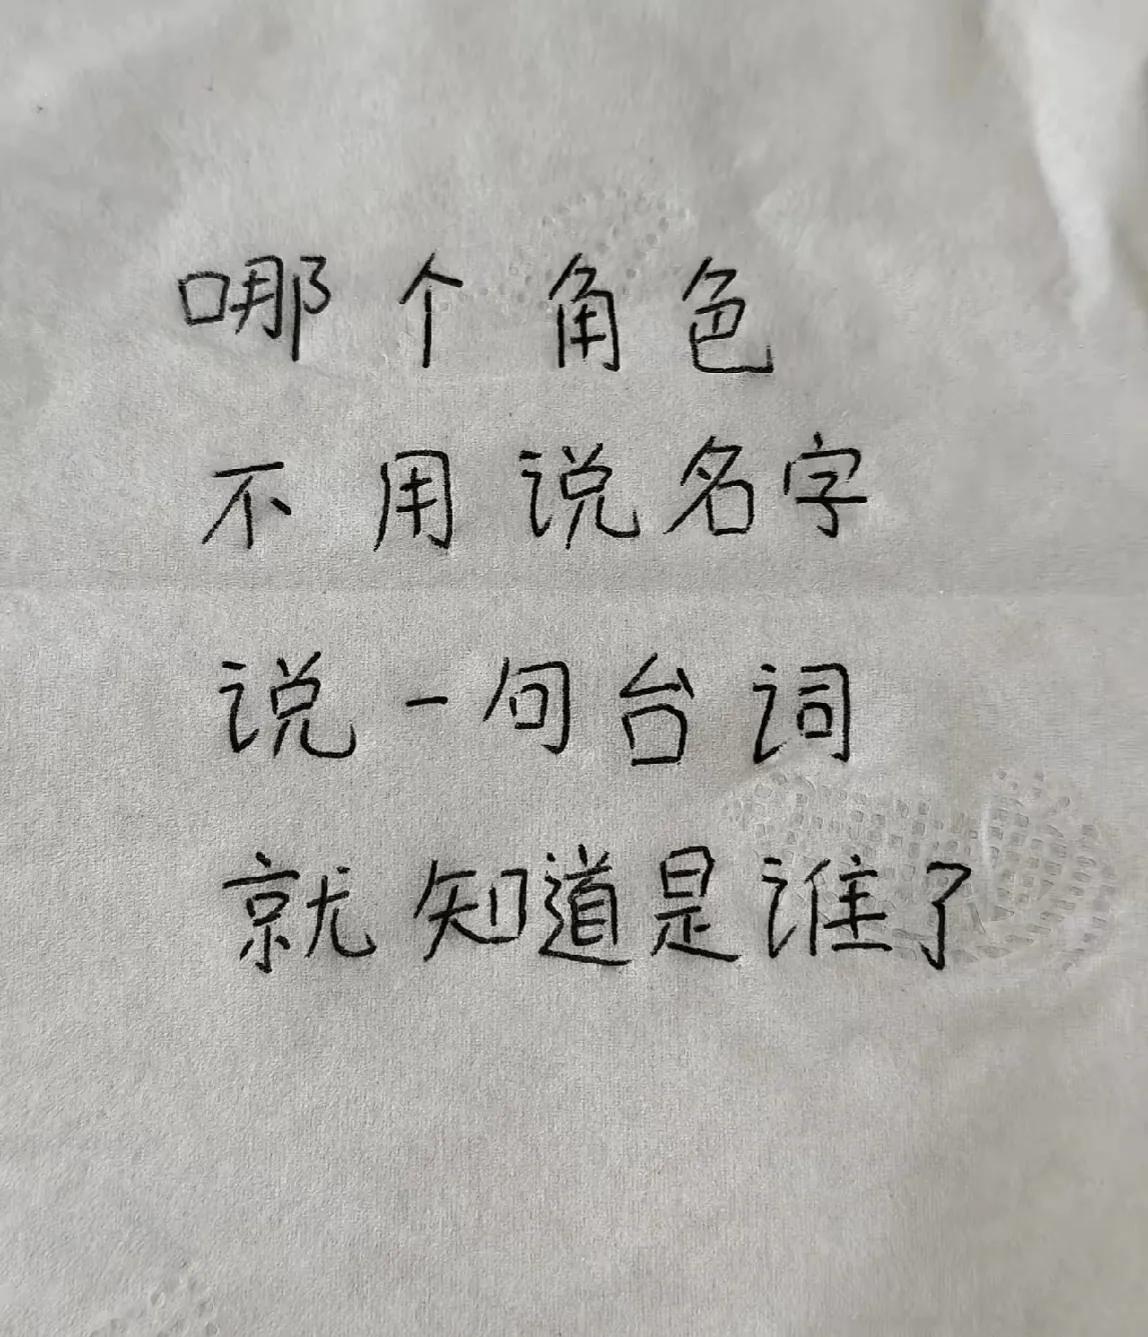 哪个角色
不用说名字
说一句台词
就知道是谁了